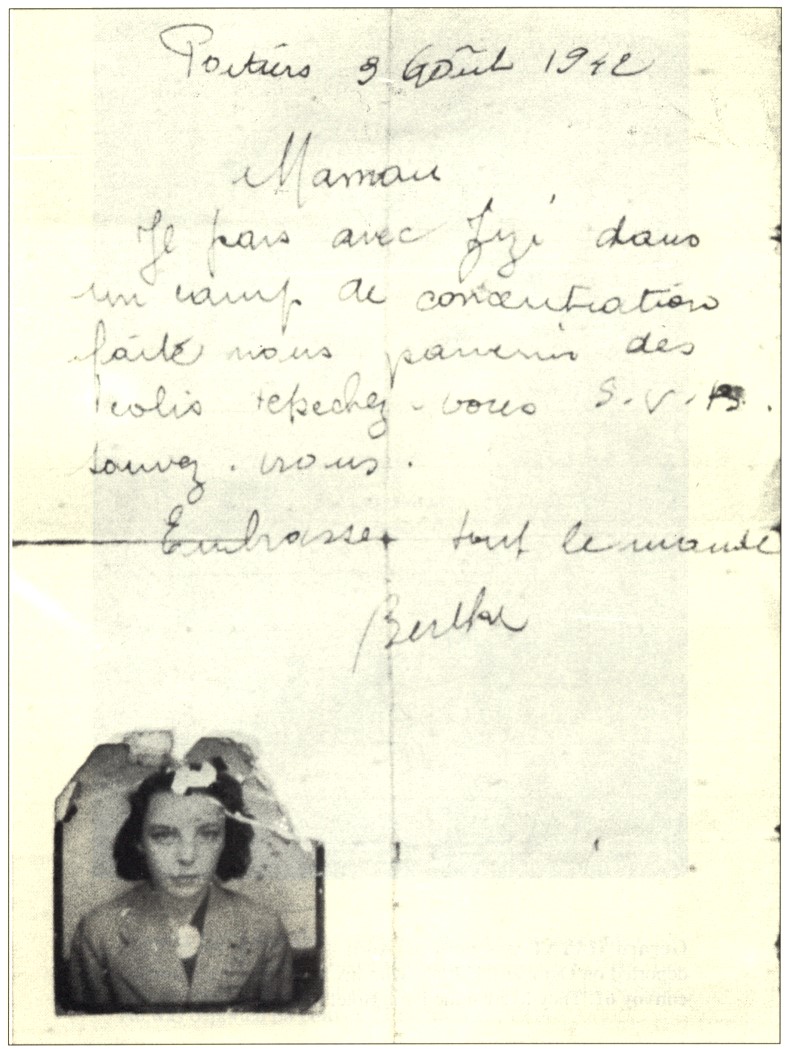 Poitiers 3 Août 1942
Maman
Je pars avec Zizi dans
un camp de concentration
faite nous parvenir des
colis depechez-vous S.V.P.
sauvez-vous.
Embrasser tout le monde
Berthe